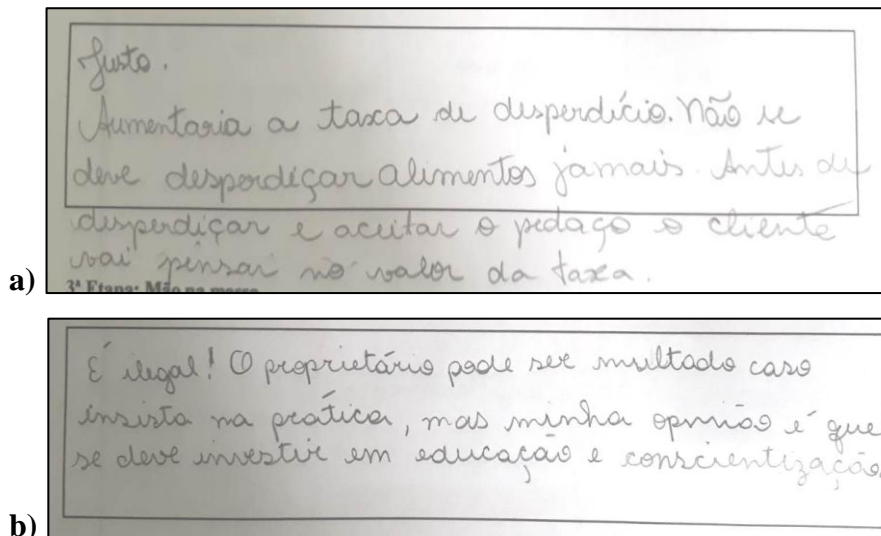 Justo.
Aumentaria a taxa de desperdício. Não se
deve desperdiçar alimentos jamais. Antes de
desperdiçar e aceitar o pedaço o cliente
vai pensar no valor da taxa.
a)
3ª Etapa: Mão na massa
É ilegal! O proprietário pode ser multado caso
insista na prática, mas minha opnião é que
se deve investir em educação e conscientização.
b)